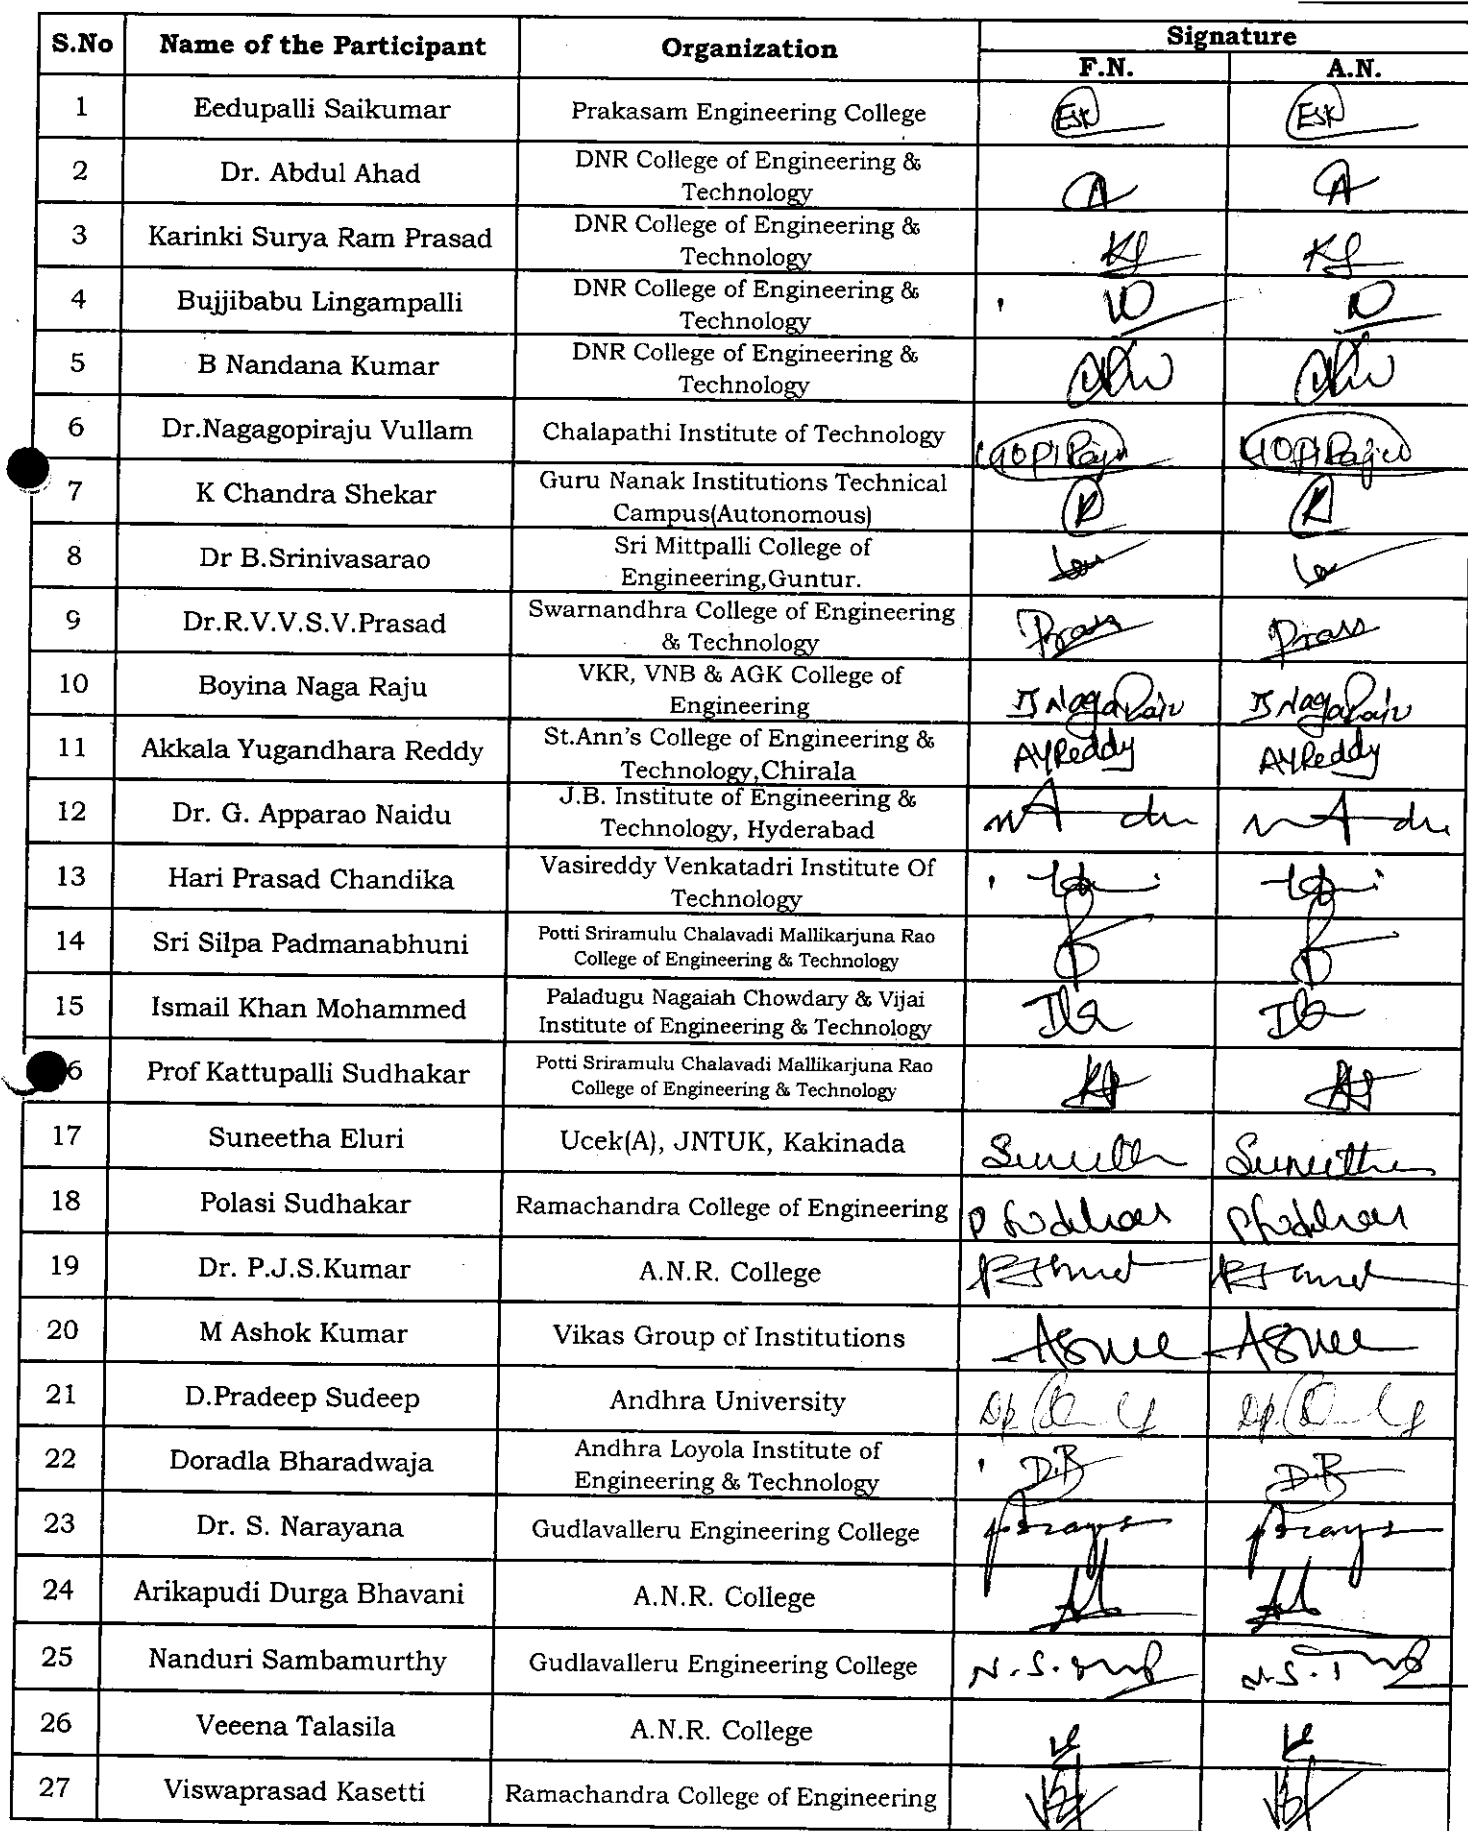 S.No Name of the Participant Organization Signature
F.N. A.N.
1 Eedupalli Saikumar Prakasam Engineering College ESK ESK
2 Dr. Abdul Ahad DNR College of Engineering &
Technology A A
3 Karinki Surya Ram Prasad DNR College of Engineering &
Technology
4 Bujjibabu Lingampalli DNR College of Engineering &
Technology
5 B Nandana Kumar DNR College of Engineering &
Technology
6 Dr.Nagagopiraju Vullam Chalapathi Institute of Technology GOPIRaju GOPIRaju
7 K Chandra Shekar Guru Nanak Institutions Technical
Campus(Autonomous)
8 Dr B.Srinivasarao Sri Mittpalli College of
Engineering,Guntur.
9 Dr.R.V.V.S.V.Prasad Swarnandhra College of Engineering
& Technology
10 Boyina Naga Raju VKR, VNB & AGK College of
Engineering B NagaRaju B NagaRaju
11 Akkala Yugandhara Reddy St.Ann's College of Engineering &
Technology,Chirala AYReddy AYReddy
12 Dr. G. Apparao Naidu J.B. Institute of Engineering &
Technology, Hyderabad
13 Hari Prasad Chandika Vasireddy Venkatadri Institute Of
Technology
14 Sri Silpa Padmanabhuni Potti Sriramulu Chalavadi Mallikarjuna Rao
College of Engineering & Technology
15 Ismail Khan Mohammed Paladugu Nagaiah Chowdary & Vijai
Institute of Engineering & Technology
6 Prof Kattupalli Sudhakar Potti Sriramulu Chalavadi Mallikarjuna Rao
College of Engineering & Technology
17 Suneetha Eluri Ucek(A), JNTUK, Kakinada
18 Polasi Sudhakar Ramachandra College of Engineering P Sudhakar P Sudhakar
19 Dr. P.J.S.Kumar A.N.R. College
20 M Ashok Kumar Vikas Group of Institutions
21 D.Pradeep Sudeep Andhra University
22 Doradla Bharadwaja Andhra Loyola Institute of
Engineering & Technology D.B D.B
23 Dr. S. Narayana Gudlavalleru Engineering College
24 Arikapudi Durga Bhavani A.N.R. College
25 Nanduri Sambamurthy Gudlavalleru Engineering College
26 Veeena Talasila A.N.R. College
27 Viswaprasad Kasetti Ramachandra College of Engineering